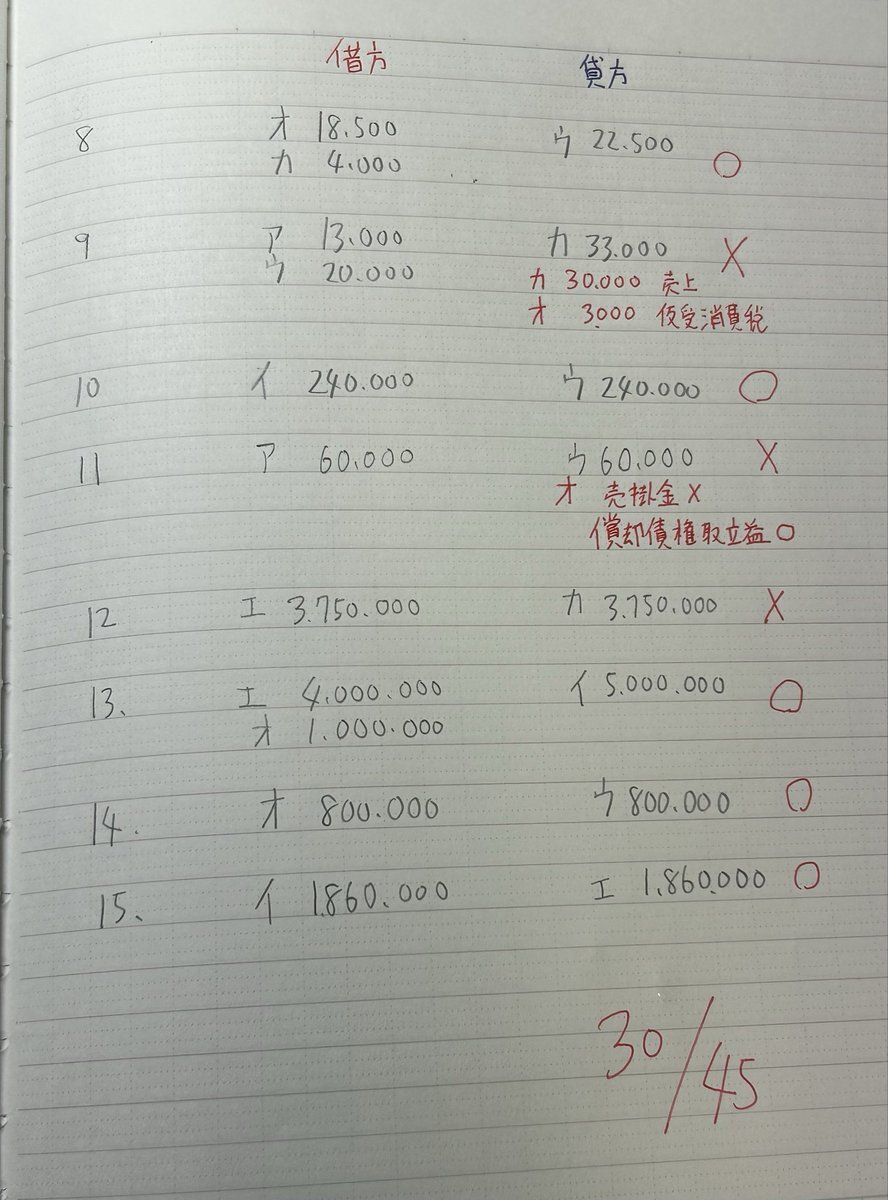 借方 貸方
8 オ 18.500 ウ 22.500 ○
カ 4.000
9 ア 13.000 カ 33.000 ×
ウ 20.000 カ 30.000 売上
オ 3000 仮受消費税
10 イ 240.000 ウ 240.000 ○
11 ア 60.000 ウ 60.000 ×
オ 売掛金 ×
償却債権取立益 ○
12 エ 3.750.000 カ 3.750.000 ×
13、 エ 4.000.000 イ 5.000.000 ○
オ 1.000.000
14. オ 800.000 ウ 800.000 ○
15、 イ 1.860.000 エ 1.860.000 ○
30/45